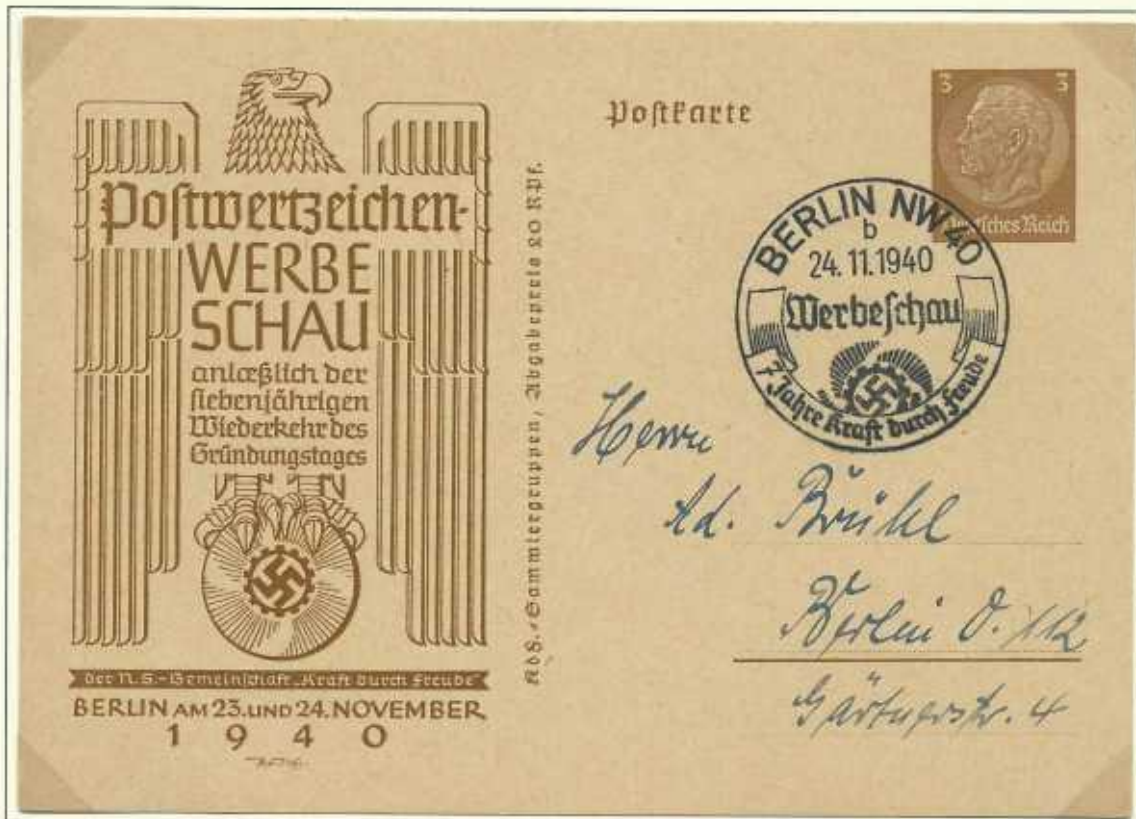 Postwertzeichen-
WERBE
SCHAU
anlæßlich der
siebenjährigen
Wiederkehr des
Gründungstages
der N.S.-Gemeinschaft „Kraft durch Freude“
BERLIN AM 23. UND 24. NOVEMBER
1940
KdF.-Sammlergruppen, Abgabepreis 20 RPf.
Postkarte
3 3
Deutsches Reich
BERLIN NW 40
b
24.11.1940
Werbeschau
7 Jahre Kraft durch Freude
Herrn
Ad. Brühl
Berlin O. 112
Gärtnerstr. 4